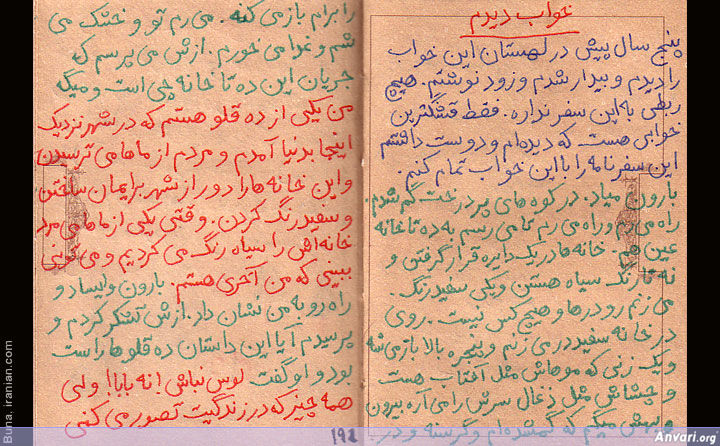 خواب دیدم
پنج سال پیش در لهستان این خواب
را دیدم و بیدار شدم و زود نوشتم. هیچ
ربطی به این سفر نداره. فقط قشنگترین
خوابی هست که دیده‌ام و دوست داشتم
این سفرنامه را با این خواب تمام کنم.
بارون میاد. در کوه های پر درخت گم شدم
راه می رم و راه می رم تا می رسم به ده تا خانه
عین هم. خانه ها در یک دایره قرار گرفتن و
نه تا رنگ سیاه هستن و یکی سفید رنگ.
می زنم رو درها و هیچ کس نیست. روی
در خانه سفید در می زنم و پنجره بالا باز می شه
و یک زنی که موهاش مثل آفتاب هست
و چشاش مثل ذغال سرش را می آره بیرون
و بهش میگم که گمشده‌ام و گرسنه و در
را برام باز می کنه. می رم تو و خشک می
شم و غذا می خورم. ازش می پرسم که
جریان این ده تا خانه چی است و میگه
من یکی از ده قلو هستم که در شهر نزدیک
اینجا بدنیا آمدم و مردم از ماها می ترسیدن
و این خانه ها را دور از شهر برایمان ساختن
و سفید رنگ کردن. وقتی یکی از ماها می مرد
خانه اش را سیاه رنگ می کردیم و می تونی
ببینی که من آخری هستم. بارون وایساد و
راه رو به من نشان داد. ازش تشکر کردم و
پرسیدم آیا این داستان ده قلوها راست
بود و او گفت لوس نباش! نه بابا! ولی
همه چیز که در زندگیت تصور می کنی
192
Buna. iranian.com
Anvari.org